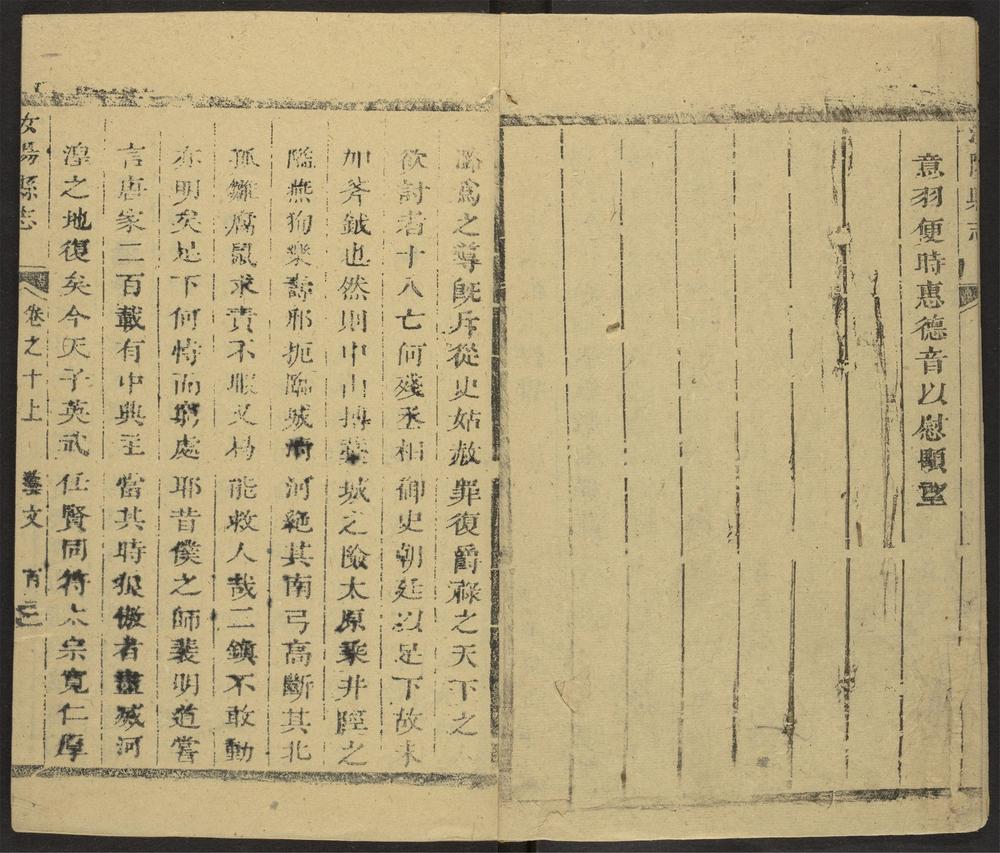 意羽便時惠德音以慰顒望
潞爲之尊旣斥從史姑赦罪復爵祿之天下之
欲討者十八亡何殘丞相御史朝廷以足下故未
加斧鉞也然則中山搏藁城之險太原乘井陘之
隘燕狥樂壽邢扼臨城清河絕其南弓高斷其北
孤雛腐鼠求責不暇又曷能救人哉二鎮不敢動
亦明矣足下何恃而窮處耶昔僕之師裴明道嘗
言唐家二百載有中興主當其時狠傲者盡滅河
湟之地復矣今天子英武任賢同符太宗寬仁厚
汝陽縣志 卷之十上 藝文